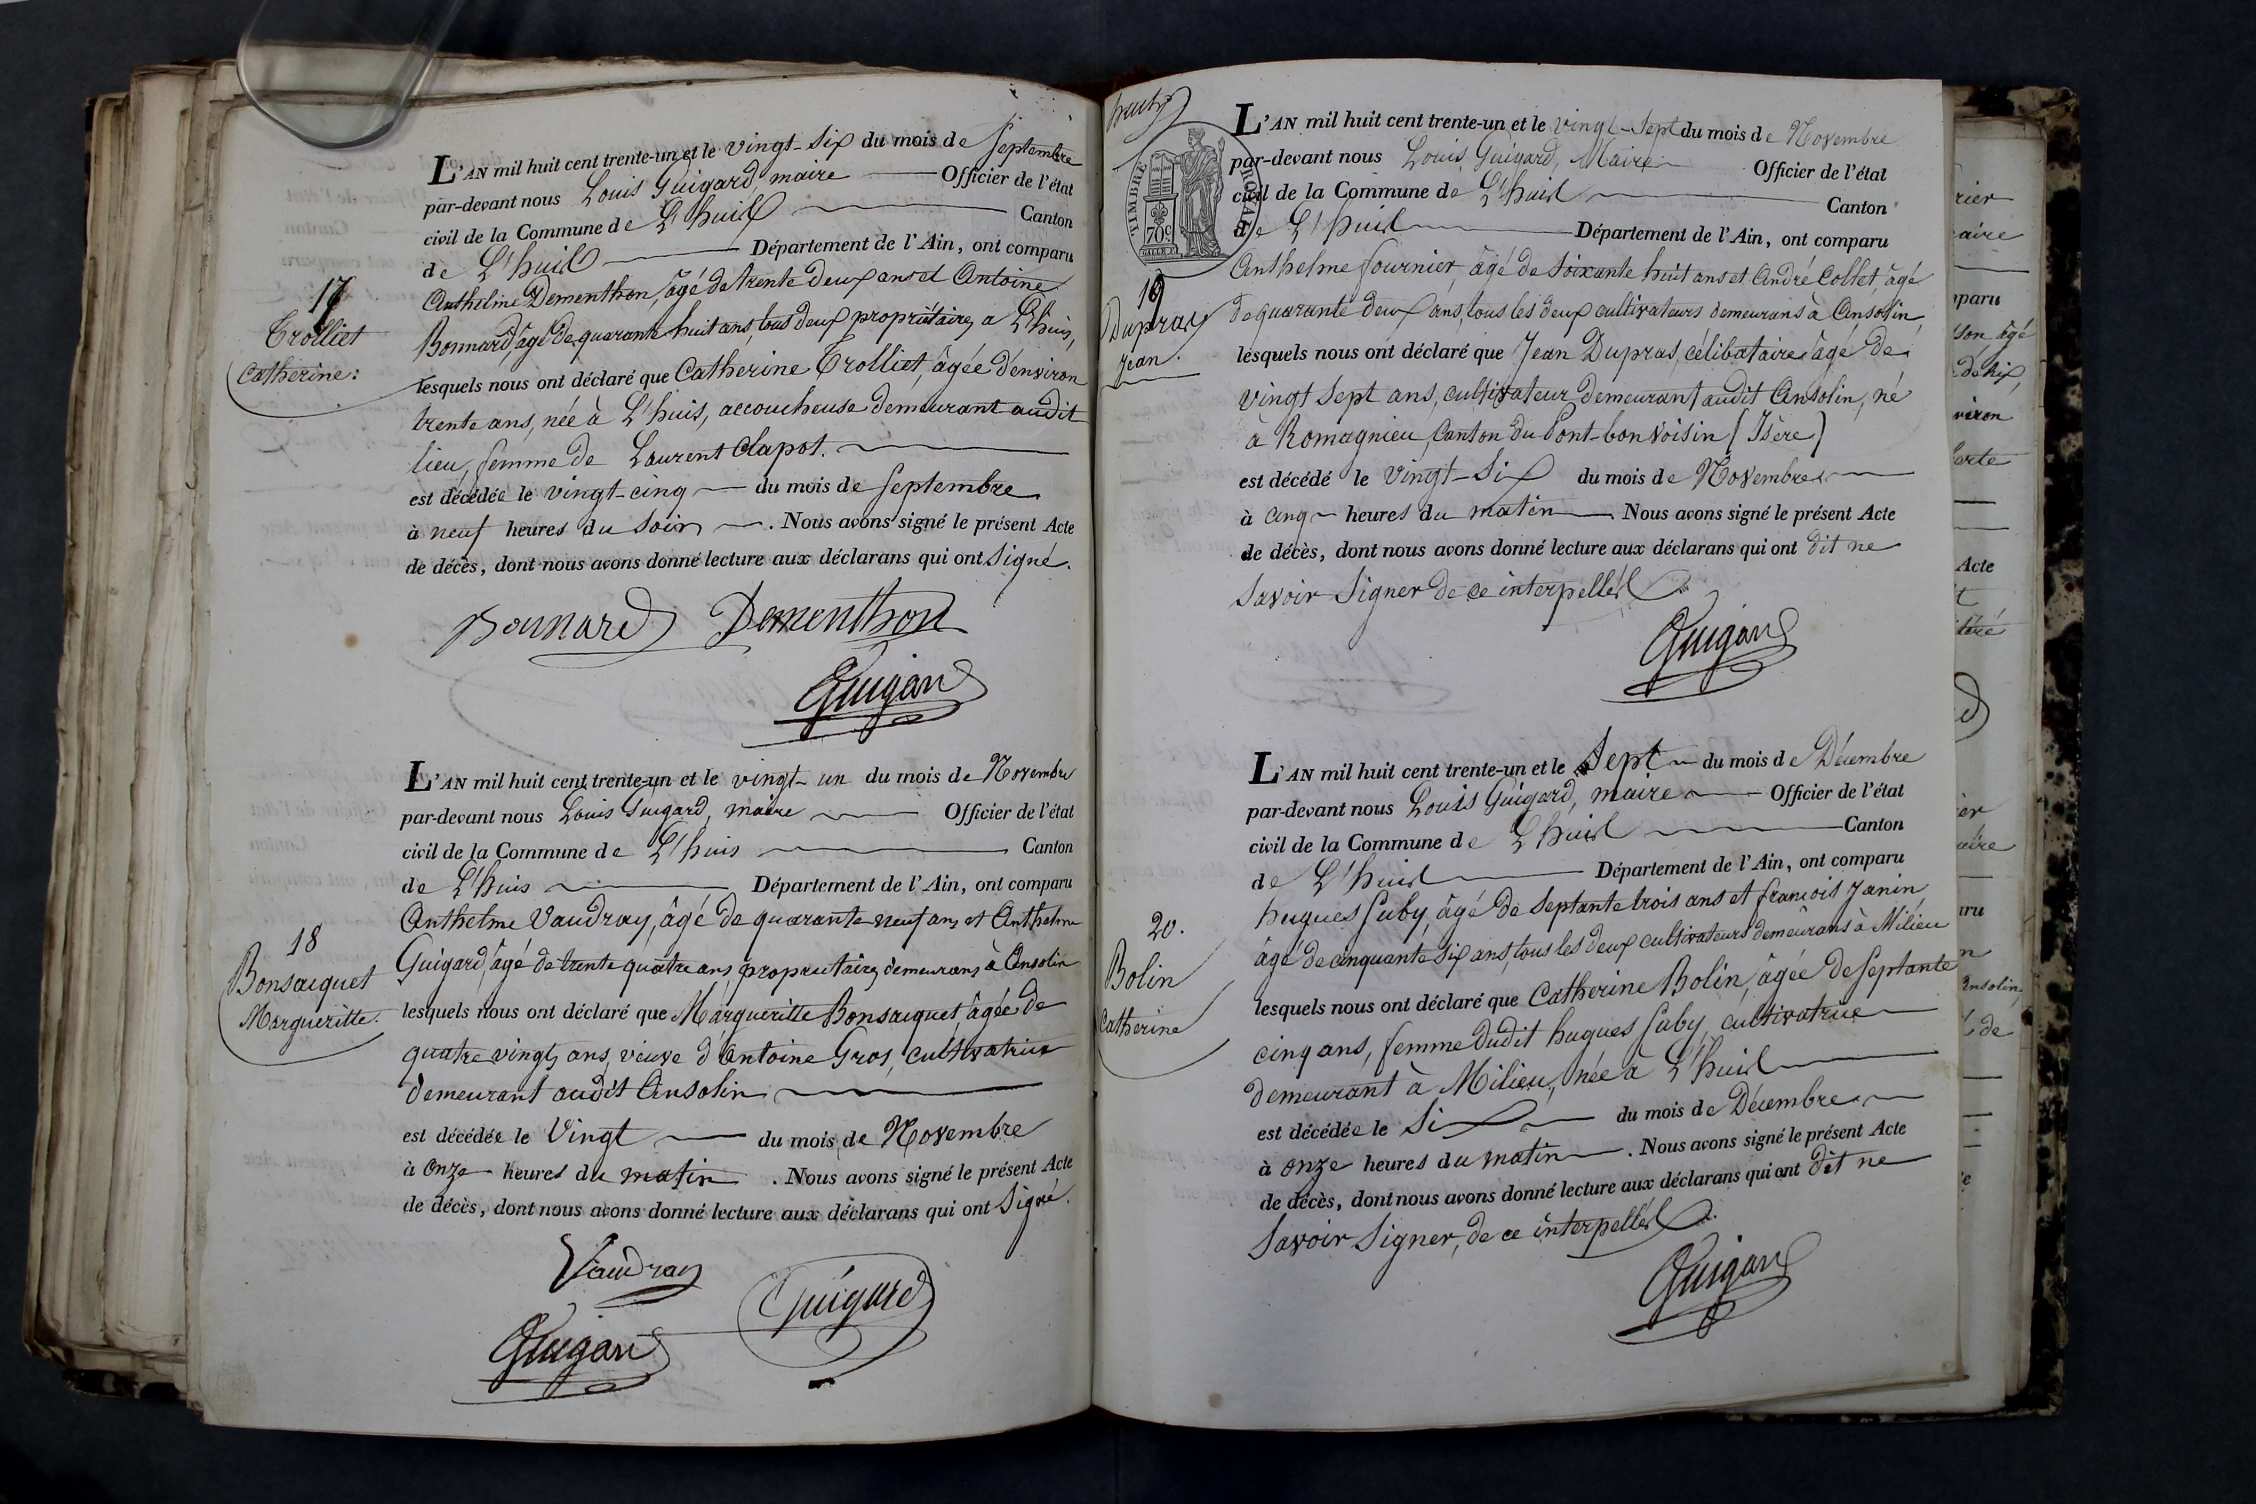 L'AN mil huit cent trente-un et le vingt-six du mois de Septembre
par-devant nous Louis Guigard, maire Officier de l'état
civil de la Commune de L'huis Canton
de L'huis Département de l'Ain, ont comparu
Anthelme Dementhon, âgé de trente deux ans et Antoine
Bonnard, âgé de quarante huit ans, tous deux propriétaires, a L'huis,
lesquels nous ont déclaré que Catherine Trolliet, âgée d'environ
trente ans, née à L'huis, accoucheuse demeurant audit
lieu, femme de Laurent Clapot.
est décédée le vingt-cinq du mois de Septembre
à neuf heures du Soir. Nous avons signé le présent Acte
de décès, dont nous avons donné lecture aux déclarans qui ont Signé.
17
Trolliet
Catherine:
Bonnard Dementhon
Guigard
L'AN mil huit cent trente-un et le vingt-un du mois de Novembre
par-devant nous Louis Guigard, maire Officier de l'état
civil de la Commune de L'huis Canton
de L'huis Département de l'Ain, ont comparu
Anthelme Vaudray, âgé de quarante neuf ans et Anthelme
Guigard, âgé de trente quatre ans, propriétaires demeurans à Ansolin
lesquels nous ont déclaré que Margueritte Bonsacquet, âgée de
quatre vingts ans, veuve d'Antoine Gros, cultivatrice
demeurant audit Ansolin
est décédée le Vingt du mois de Novembre
à onze heures du matin. Nous avons signé le présent Acte
de décès, dont nous avons donné lecture aux déclarans qui ont Signé.
18
Bonsacquet
Margueritte.
Vaudray
Guigard
Guigard
TIMBRE ROYAL
70c
L'AN mil huit cent trente-un et le vingt-Sept du mois de Novembre
par-devant nous Louis Guigard, Maire Officier de l'état
civil de la Commune de L'huis Canton
de L'huis Département de l'Ain, ont comparu
Anthelme fournier, âgé de Soixante huit ans et André Collet, âgé
de quarante deux ans, tous les deux cultivateurs demeurans à Ansolin,
lesquels nous ont déclaré que Jean Dupras, célibataire âgé de
vingt Sept ans, cultivateur demeurant audit Ansolin, né
à Romagnieu, Canton du Pont-bonvoisin (Isère)
est décédé le vingt-Six du mois de Novembre
à cinq heures du matin Nous avons signé le présent Acte
de décès, dont nous avons donné lecture aux déclarans qui ont dit ne
Savoir Signer de ce interpellés
19
Dupras
Jean.
Guigard
L'AN mil huit cent trente-un et le Sept du mois de Décembre
par-devant nous Louis Guigard, maire Officier de l'état
civil de la Commune de L'huis Canton
de L'huis Département de l'Ain, ont comparu
hugues Suby, âgé de Septante trois ans et francois Janin,
âgé de cinquante Six ans, tous les deux cultivateurs demeurans à Milieu
lesquels nous ont déclaré que Catherine Bolin, âgée de Septante
cinq ans, femme dudit hugues Suby, cultivatrice
demeurant à Milieu, née à L'huis
est décédée le Six du mois de Décembre
à onze heures du matin. Nous avons signé le présent Acte
de décès, dont nous avons donné lecture aux déclarans qui ont dit ne
Savoir Signer, de ce interpellés
20.
Bolin
Catherine
Guigard